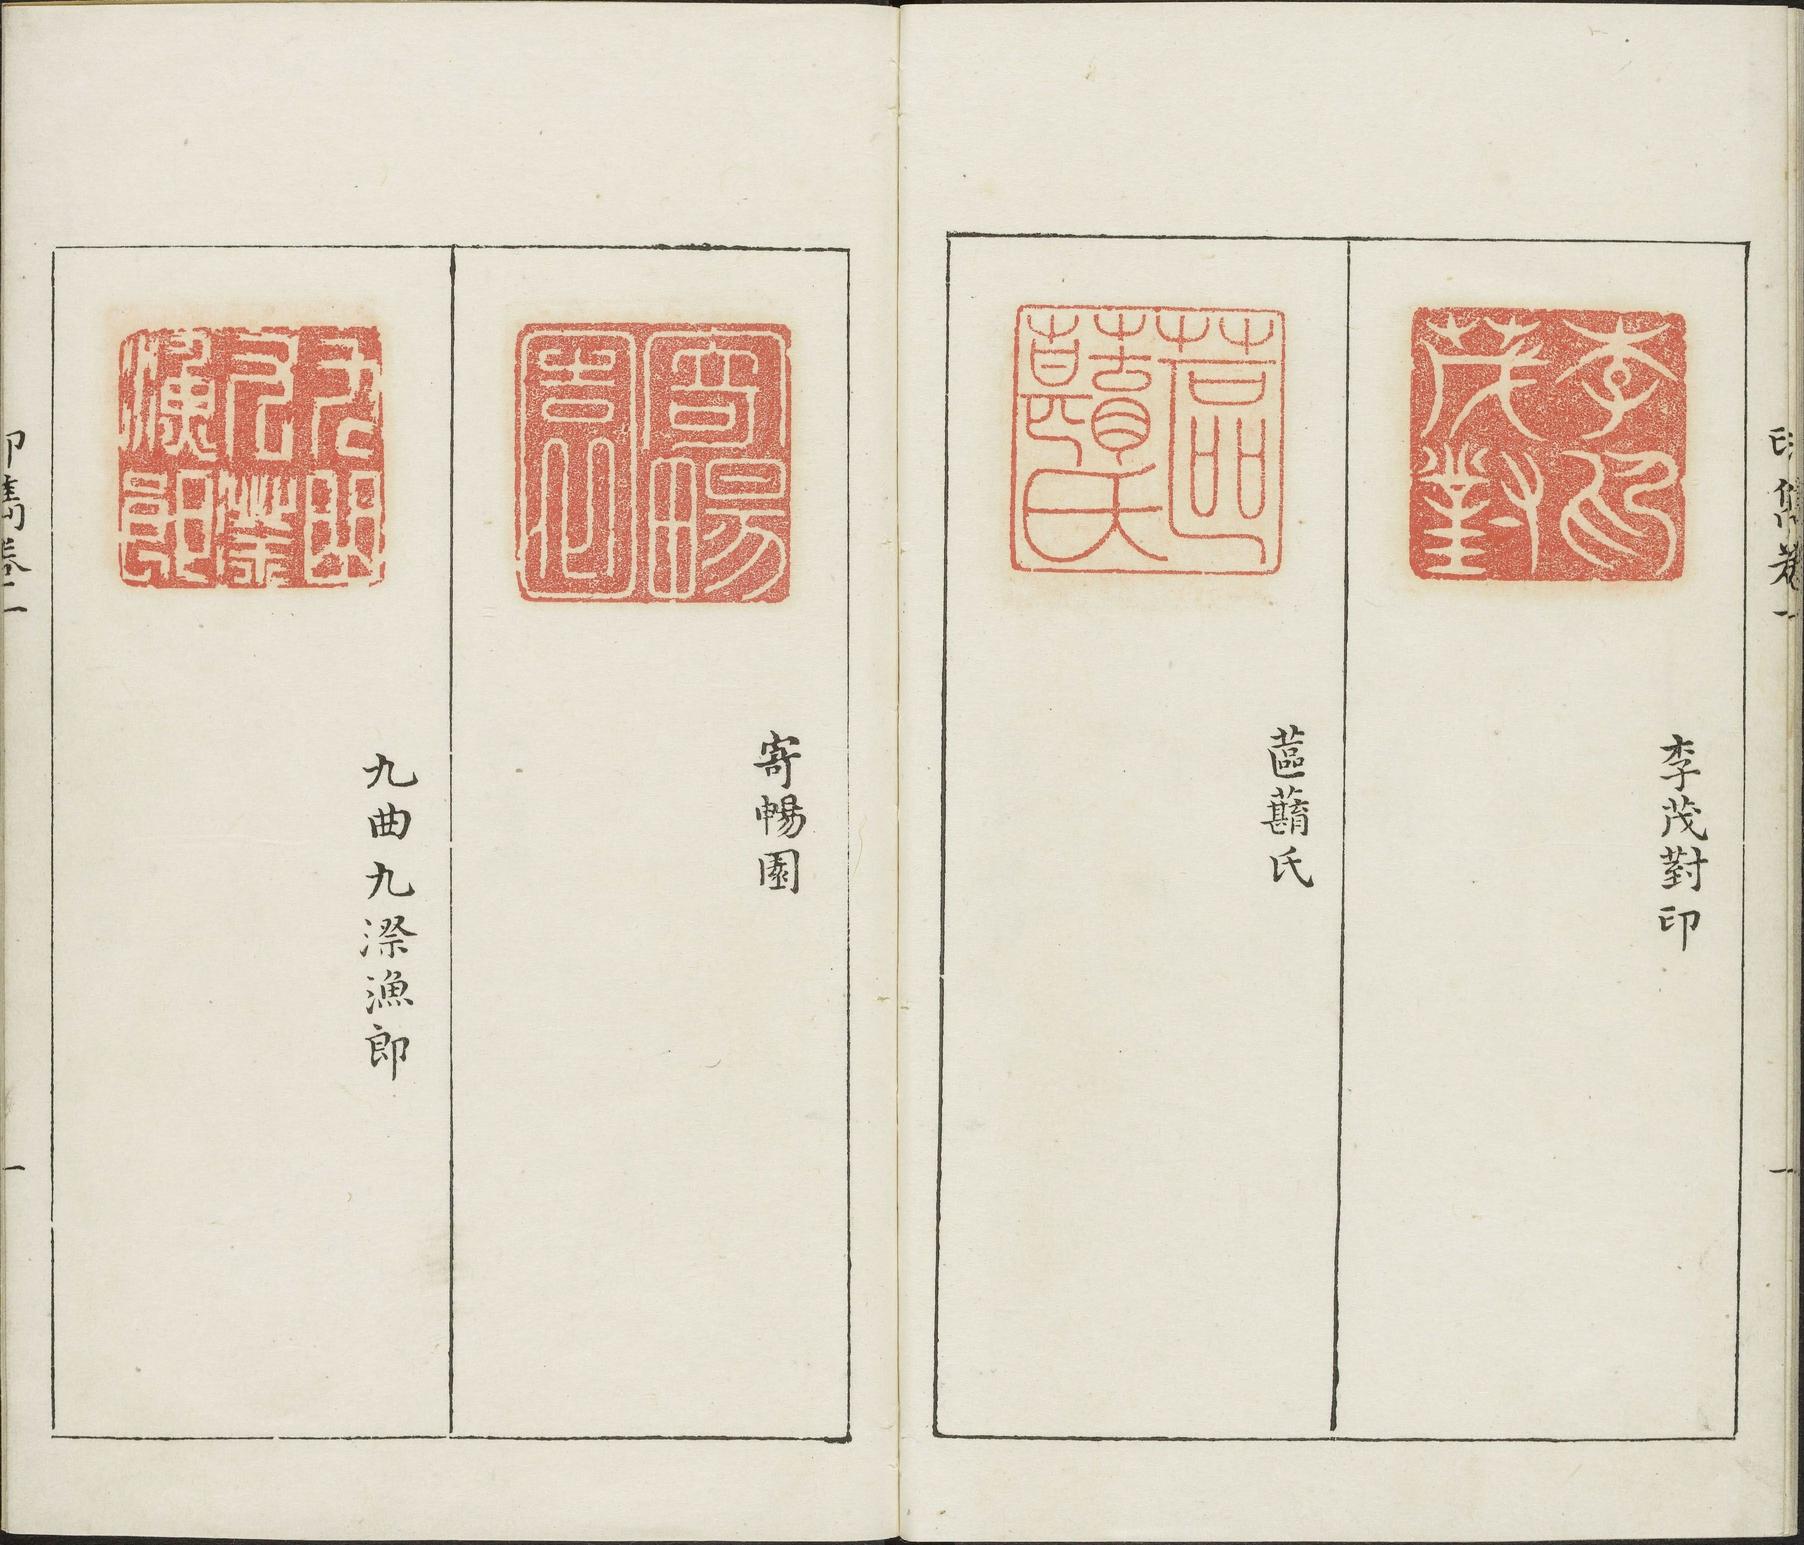 印雋卷二
一
李茂對印
蓲蘛氏
寄暢園
九曲九漈漁郎
印雋卷二
一